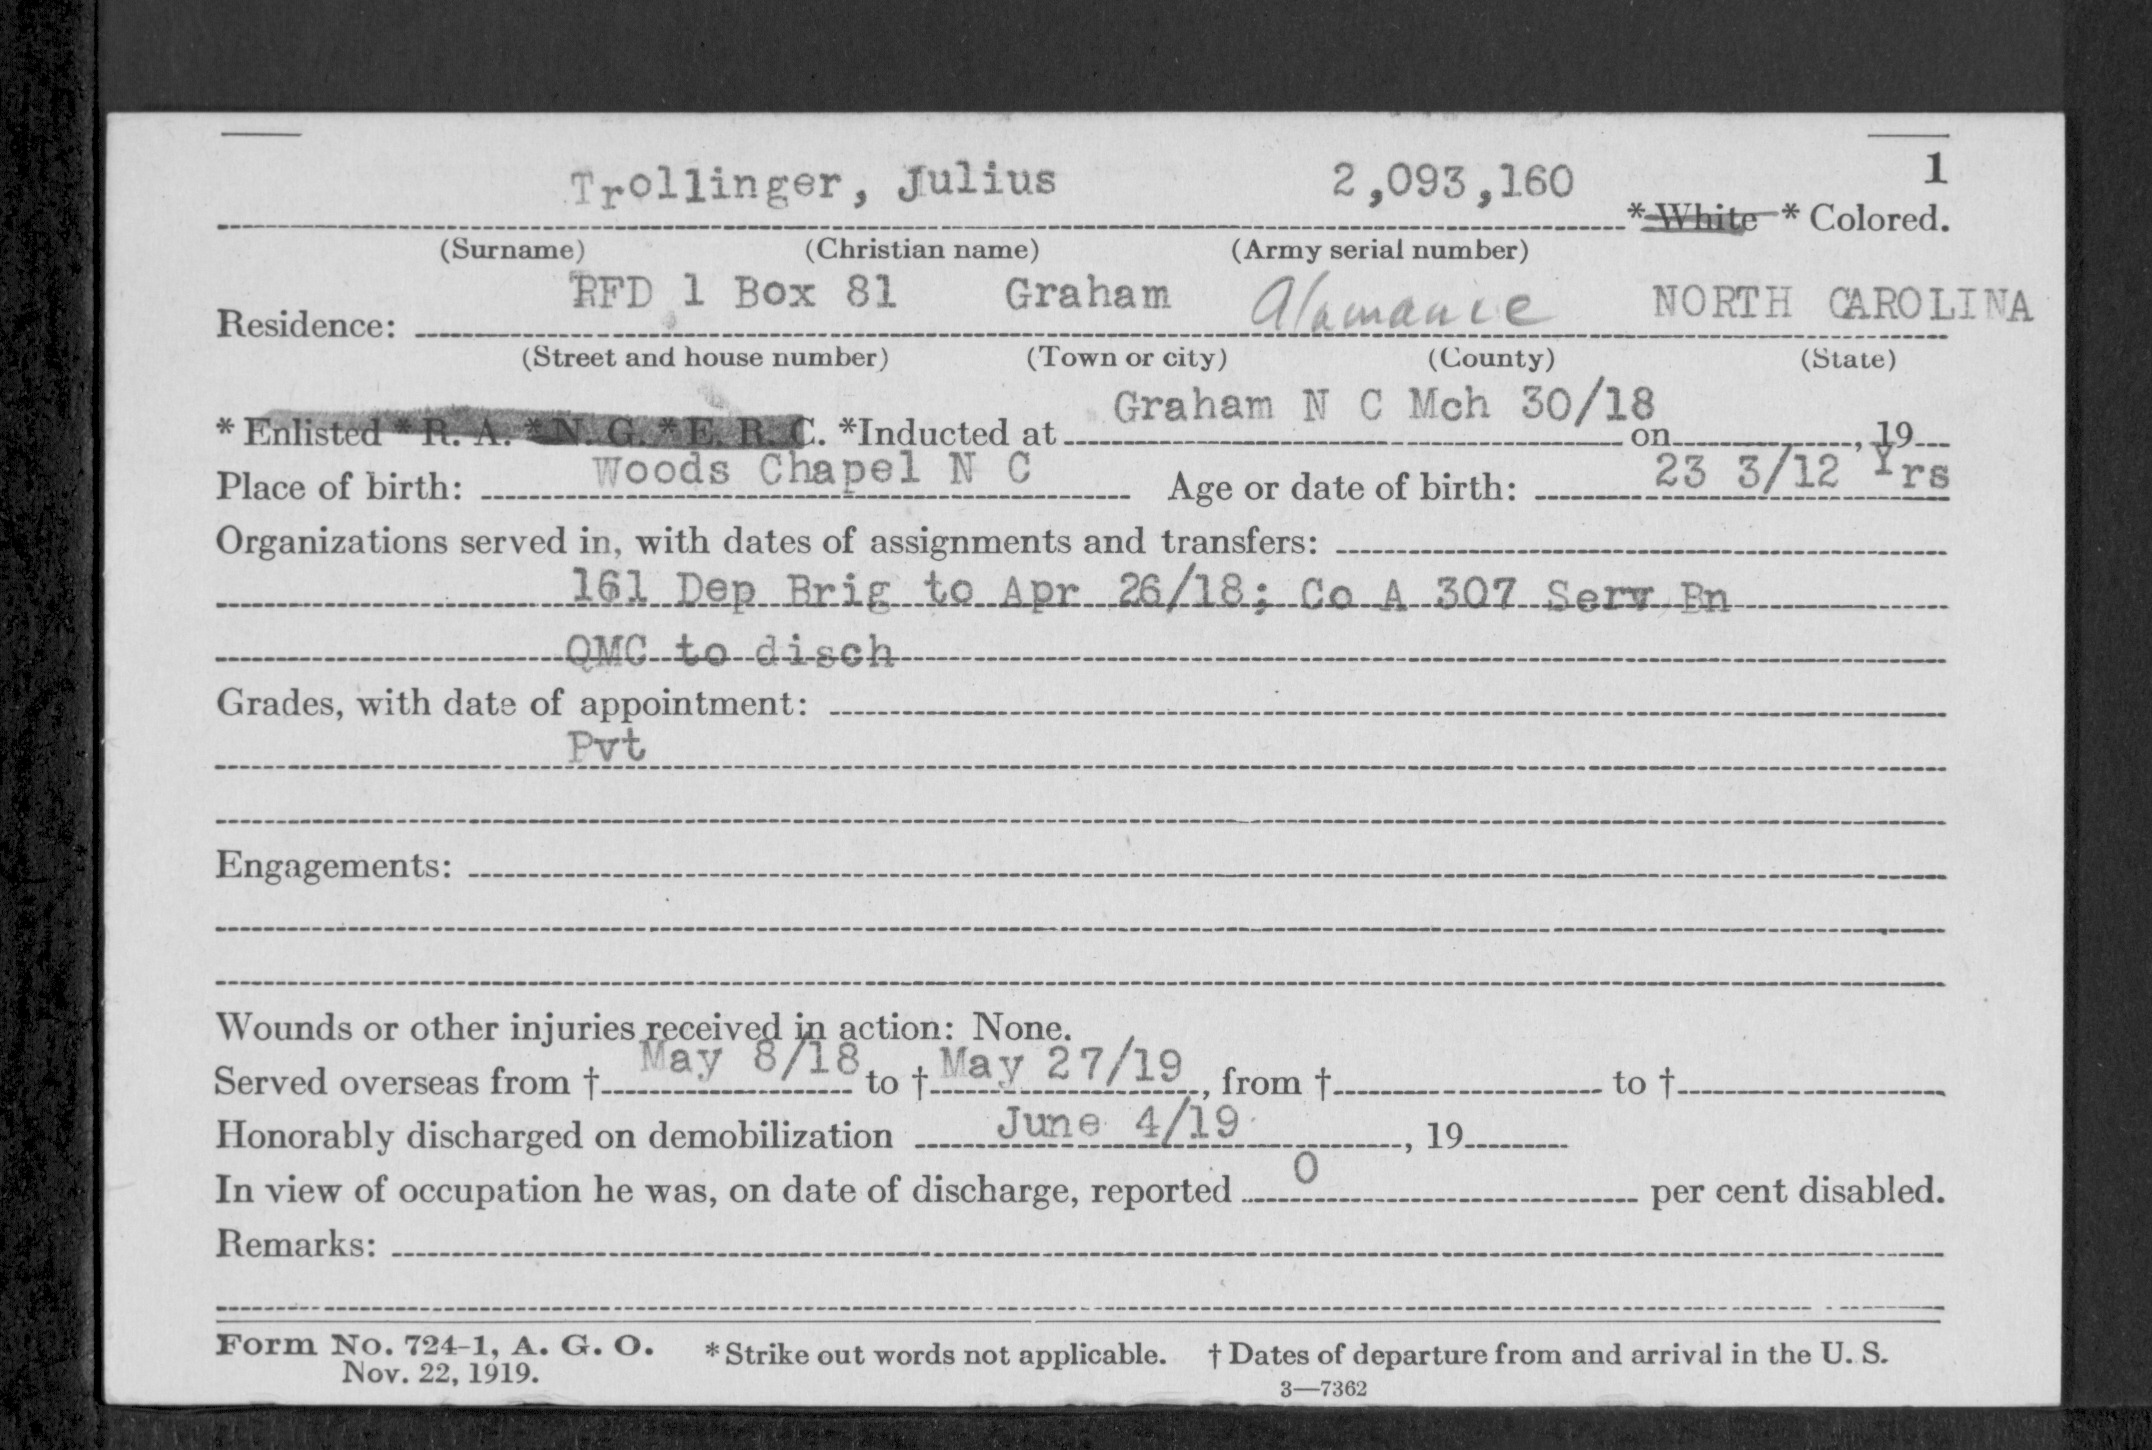 Trollinger, Julius 2,093,160 1
* White * Colored.
(Surname) (Christian name) (Army serial number)
RFD 1 Box 81 Graham Alamance NORTH CAROLINA
Residence:
(Street and house number) (Town or city) (County) (State)
Graham N C Mch 30/18
* Enlisted * R. A. * N. G. * E. R. C. *Inducted at on , 19
Place of birth: Woods Chapel N C Age or date of birth: 23 3/12 Yrs
Organizations served in, with dates of assignments and transfers:
161 Dep Brig to Apr 26/18; Co A 307 Serv Bn
QMC to disch
Grades, with date of appointment:
Pvt
Engagements:
Wounds or other injuries received in action: None.
Served overseas from † May 8/18 to † May 27/19, from † to †
Honorably discharged on demobilization June 4/19 , 19
In view of occupation he was, on date of discharge, reported 0 per cent disabled.
Remarks:
Form No. 724-1, A. G. O. * Strike out words not applicable. † Dates of departure from and arrival in the U. S.
Nov. 22, 1919.
3—7362